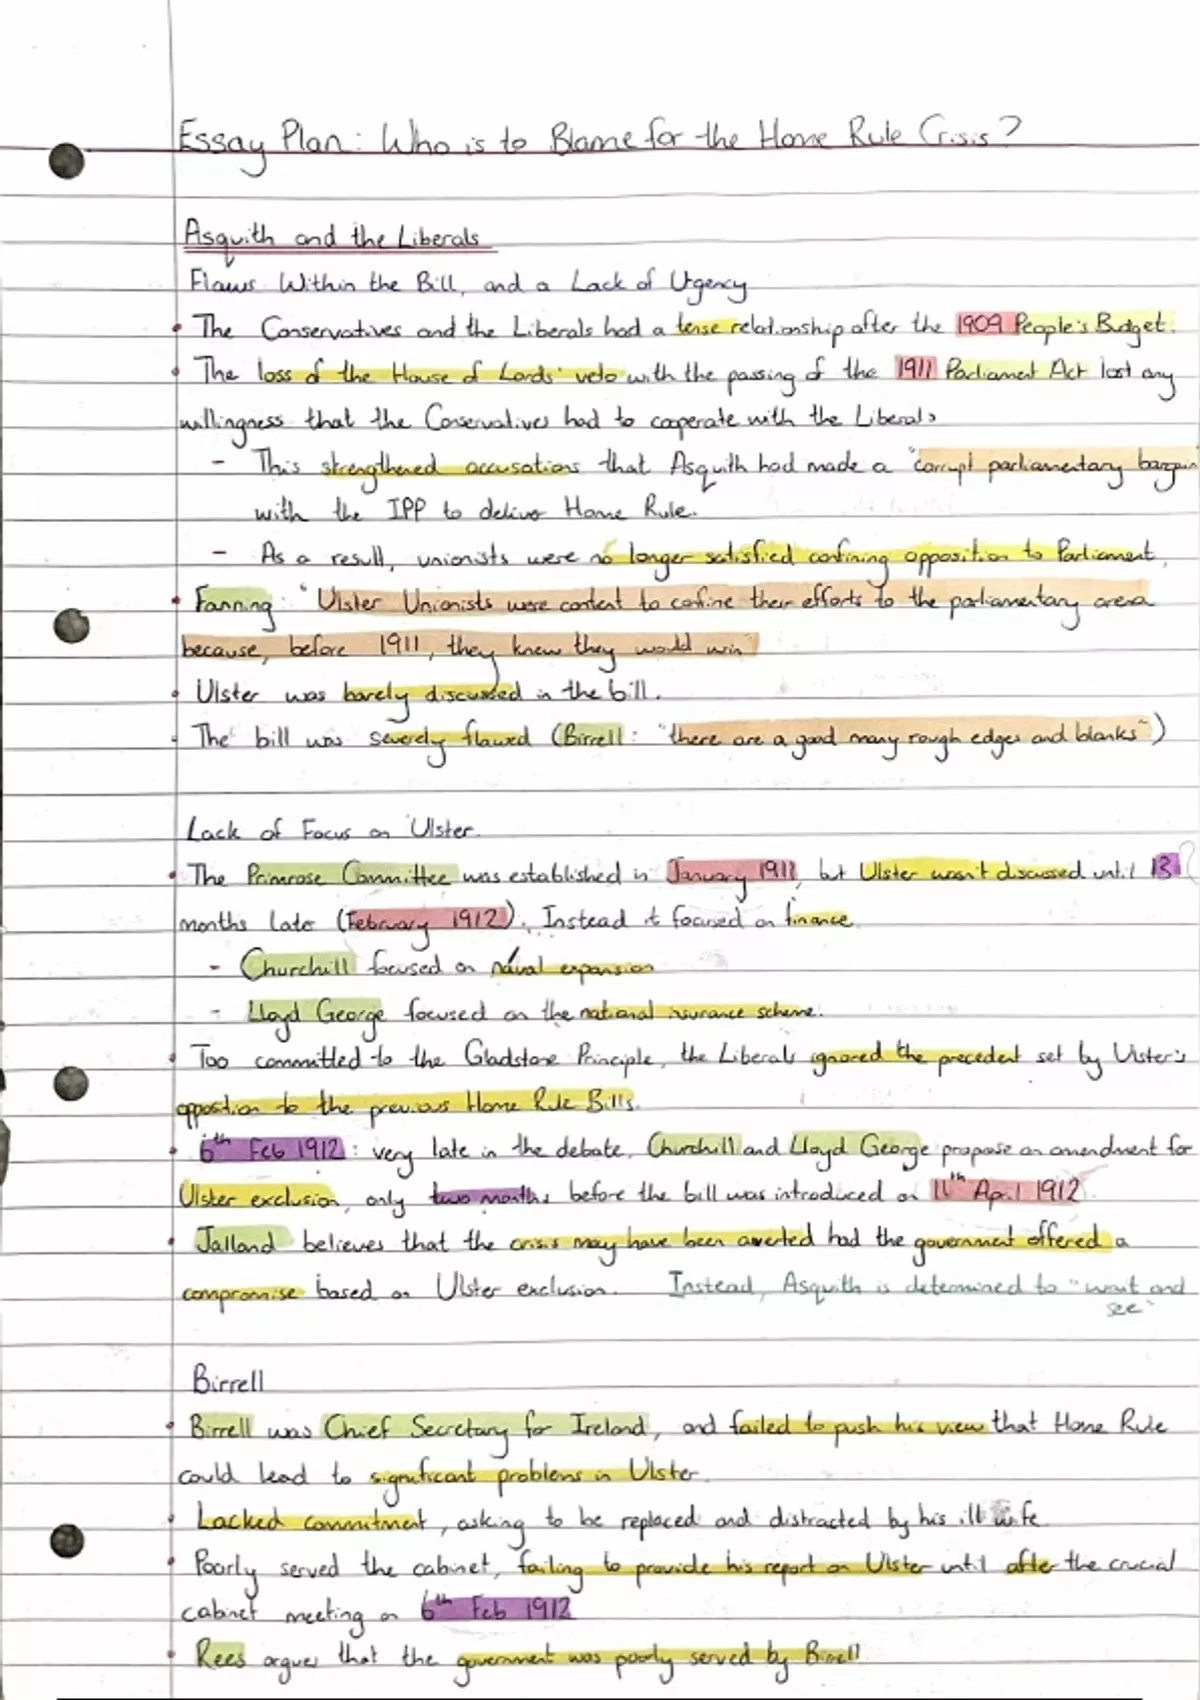 Essay Plan: Who is to Blame for the Home Rule Crisis?
Asquith and the Liberals
Flaws Within the Bill, and a Lack of Urgency
• The Conservatives and the Liberals had a tense relationship after the 1909 People's Budget.
• The loss of the House of Lords' veto with the passing of the 1911 Parliament Act lost any
willingness that the Conservatives had to cooperate with the Liberals
- This strengthened accusations that Asquith had made a "corrupt parliamentary bargain
with the IPP to deliver Home Rule.
- As a result, unionists were no longer satisfied confining opposition to Parliament.
• Fanning: "Ulster Unionists were content to confine their efforts to the parliamentary arena
because, before 1911, they knew they would win"
• Ulster was barely discussed in the bill.
• The bill was severely flawed (Birrell: "there are a good many rough edges and blanks")
Lack of Focus on Ulster
• The Primrose Committee was established in January 1911, but Ulster wasn't discussed until 13
months later (February 1912). Instead it focused on finance.
- Churchill focused on naval expansion
- Lloyd George focused on the national insurance scheme.
• Too committed to the Gladstone Principle, the Liberals ignored the precedent set by Ulster's
oppostion to the previous Home Rule Bills.
• 6th Feb 1912: very late in the debate, Churchill and Lloyd George propose an amendment for
Ulster exclusion, only two months before the bill was introduced on 11th April 1912.
• Jalland believes that the crisis may have been averted had the government offered a
compromise based on Ulster exclusion. Instead, Asquith is determined to "wait and
see"
Birrell
• Birrell was Chief Secretary for Ireland, and failed to push his view that Home Rule
could lead to significant problems in Ulster.
• Lacked commitment, asking to be replaced and distracted by his ill wife
• Poorly served the cabinet, failing to provide his report on Ulster until after the crucial
cabinet meeting on 6th Feb 1912
• Rees argues that the government was poorly served by Birrell